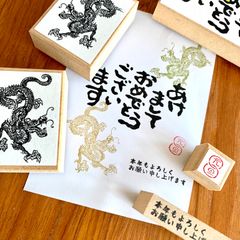 あけ
まして
おめでとう
ございます
本年もよろしく
お願い申し上げます
本年もよろしく
お願い申し上げます